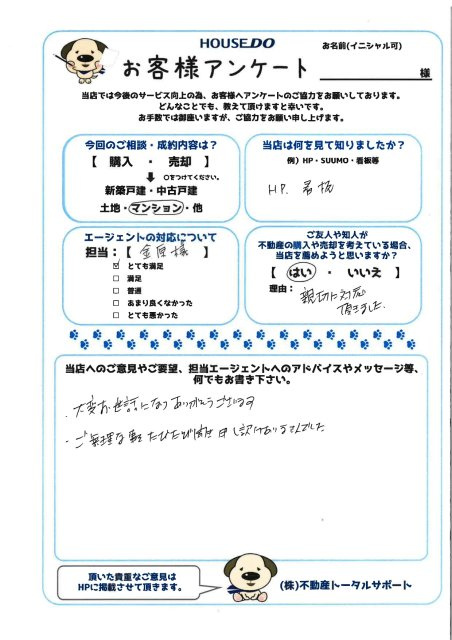 HOUSEDO
お名前(イニシャル可)
お客様アンケート
様
当店では今後のサービス向上の為、お客様へアンケートのご協力をお願いしております。
どんなことでも、教えて頂けますと幸いです。
お手数では御座いますが、ご協力をお願い申し上げます。
今回のご相談・成約内容は?
【 購入 ・ 売却 】
○をつけてください。
新築戸建・中古戸建
土地・マンション・他
当店は何を見て知りましたか?
例) HP・SUUMO・看板等
HP. 看板
エージェントの対応について
担当:【 金原様 】
とても満足
満足
普通
あまり良くなかった
とても悪かった
ご友人や知人が
不動産の購入や売却を考えている場合、
当店を薦めようと思いますか?
【 はい ・ いいえ 】
理由:
親切に対応
頂きました.
当店へのご意見やご要望、担当エージェントへのアドバイスやメッセージ等、
何でもお書き下さい。
・大変お世話になりありがとうございます
・ご無理な事 たびたび 申し訳ありませんでした
頂いた貴重なご意見は
HPに掲載させて頂きます。
(株)不動産トータルサポート